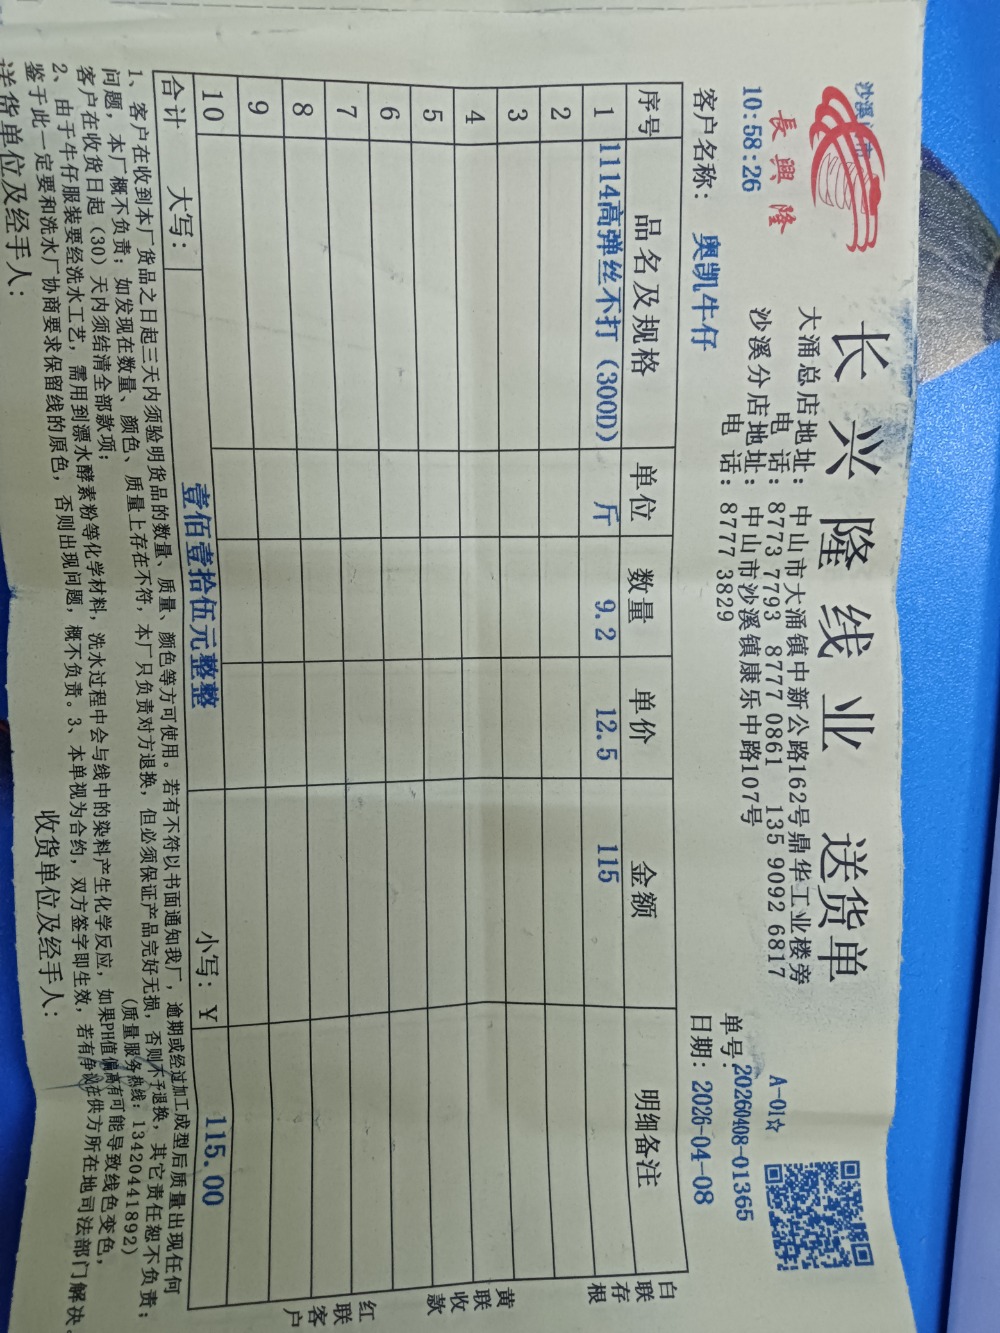 長興隆
沙溪
10:58:26
长兴隆线业 送货单
大涌总店地址：中山市大涌镇中新公路162号鼎华工业楼旁
电 话：8773 7793 8777 0861 135 9092 6817
沙溪分店地址：中山市沙溪镇康乐中路107号
电 话：8777 3829
A-01☆
单号：20260408-01365
客户名称：奥凯牛仔 日期：2026-04-08
序号 品名及规格 单位 数量 单价 金额 明细备注
1 1114高弹丝不打（300D） 斤 9.2 12.5 115
2
3
4
5
6
7
8
9
10
合计 大写：壹佰壹拾伍元整整 小写：¥ 115.00
白联存根
黄联收款
红联客户
1、客户在收到本厂货品之日起三天内须验明货品的数量、质量、颜色等方可使用。若有不符以书面通知我厂，逾期或经过加工成型后质量出现任何
问题，本厂概不负责；如发现在数量、颜色、质量上存在不符，本厂只负责对方退换，但必须保证产品完好无损，否则不予退换，其它责任恕不负责；
客户在收货日起（30）天内须结清全部款项； （质量服务热线：13420441892）
2、由于牛仔服装要经洗水工艺，需用到漂水酵素粉等化学材料，洗水过程中会与线中的染料产生化学反应，如果PH值偏高有可能导致线色变色，
鉴于此一定要和洗水厂协商要求保留线的原色，否则出现问题，概不负责。3、本单视为合约，双方签字即生效，若有争议在供方所在地司法部门解决。
送货单位及经手人： 收货单位及经手人：